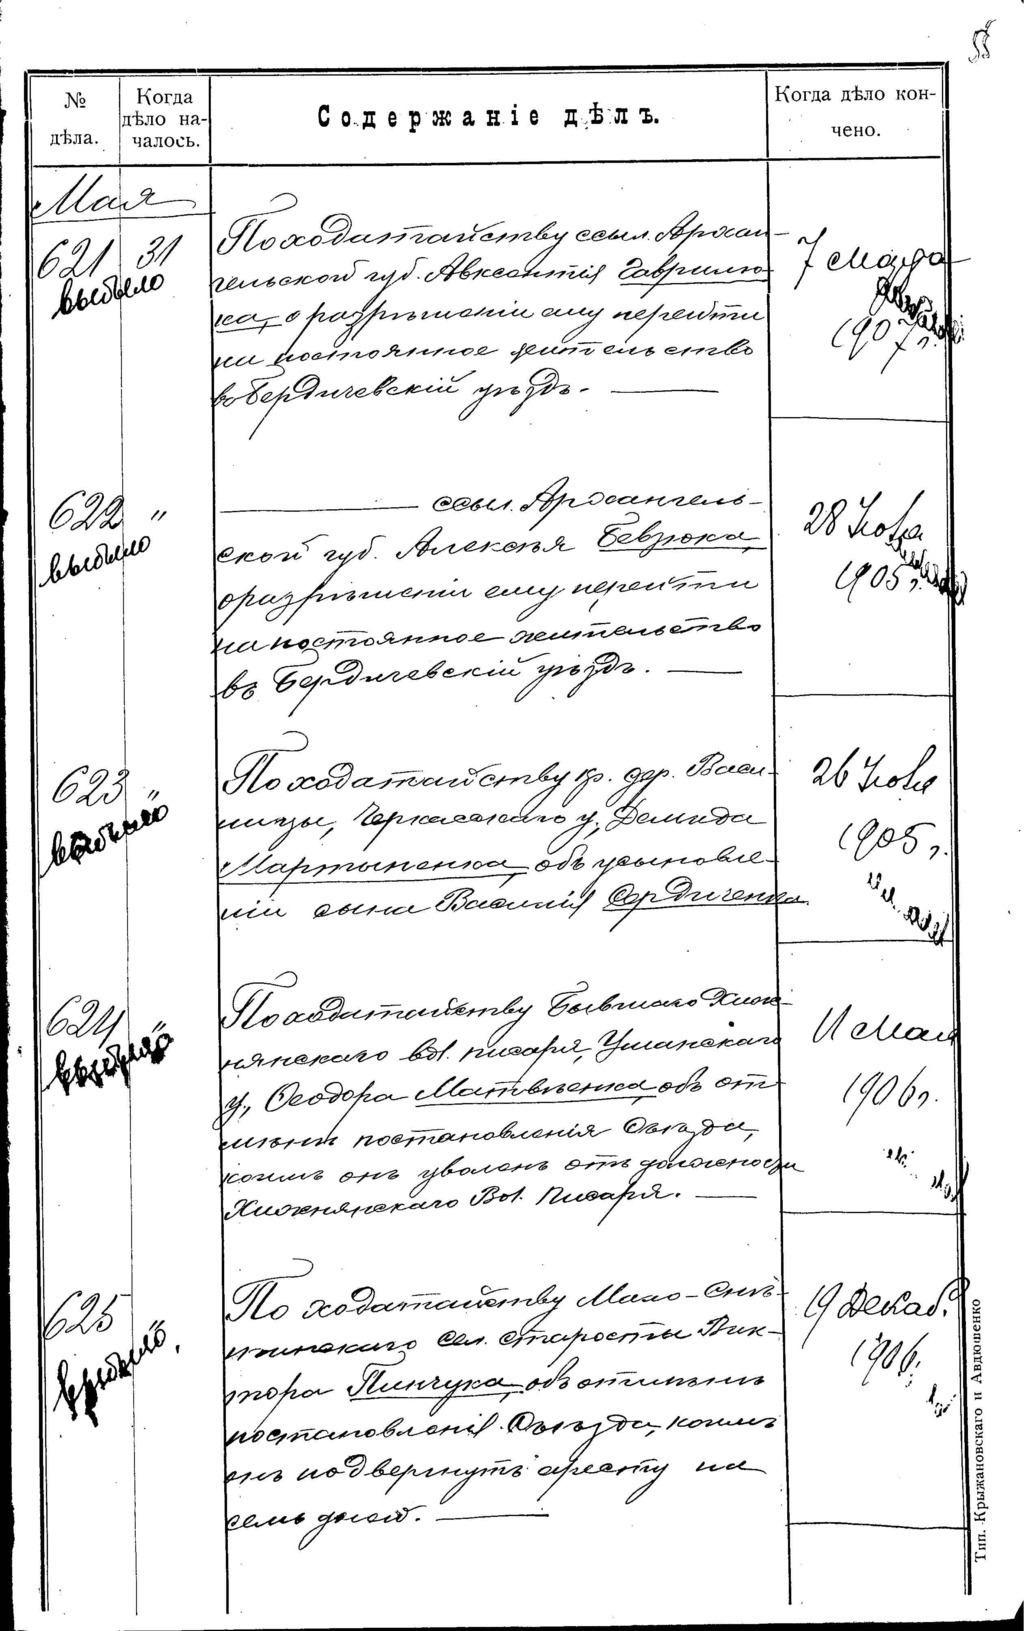 № дѣла.
Когда дѣло началось.
Содержаніе дѣлъ.
Когда дѣло кончено.
Мая
621 31
выбыло
По ходатайству ссыл. Архан-
гельской губ. Авксентія Гаврилю-
ка, о разрѣшеніи ему перейти
на постоянное жительство
въ Бердичевскій уѣздъ. —
7 Марта
1907 г.
622 "
выбыло
— ссыл. Архангель-
ской губ. Алексѣя Бевзюка,
о разрѣшеніи ему перейти
на постоянное жительство
въ Бердичевскій уѣздъ. —
28 Ноя
1905 г.
623 "
выбыло
По ходатайству кр. дер. Васи-
лицы, Черкасскаго у., Демида
Мартыненка, объ усыновле-
ніи сына Василія Сердиченка.
26 Ноя
1905 г.
624 "
выбыло
По ходатайству бывшаго Хиж-
нянскаго вол. писаря, Уманскаго
у., Ѳеодора Матвѣенка, объ от-
мѣнѣ постановленія Съѣзда,
коимъ онъ уволенъ отъ должности
Хижнянскаго Вол. Писаря. —
11 Мая
1906 г.
625 "
выбыло
По ходатайству Мало-
скаго сел. старосты Вик-
тора Пинчука, объ отмѣнѣ
постановленія Съѣзда, коимъ
онъ подвергнутъ аресту на
семь дней. —
19 Декаб.
1906 г.
Тип. Крыжановскаго и Авдюшенко